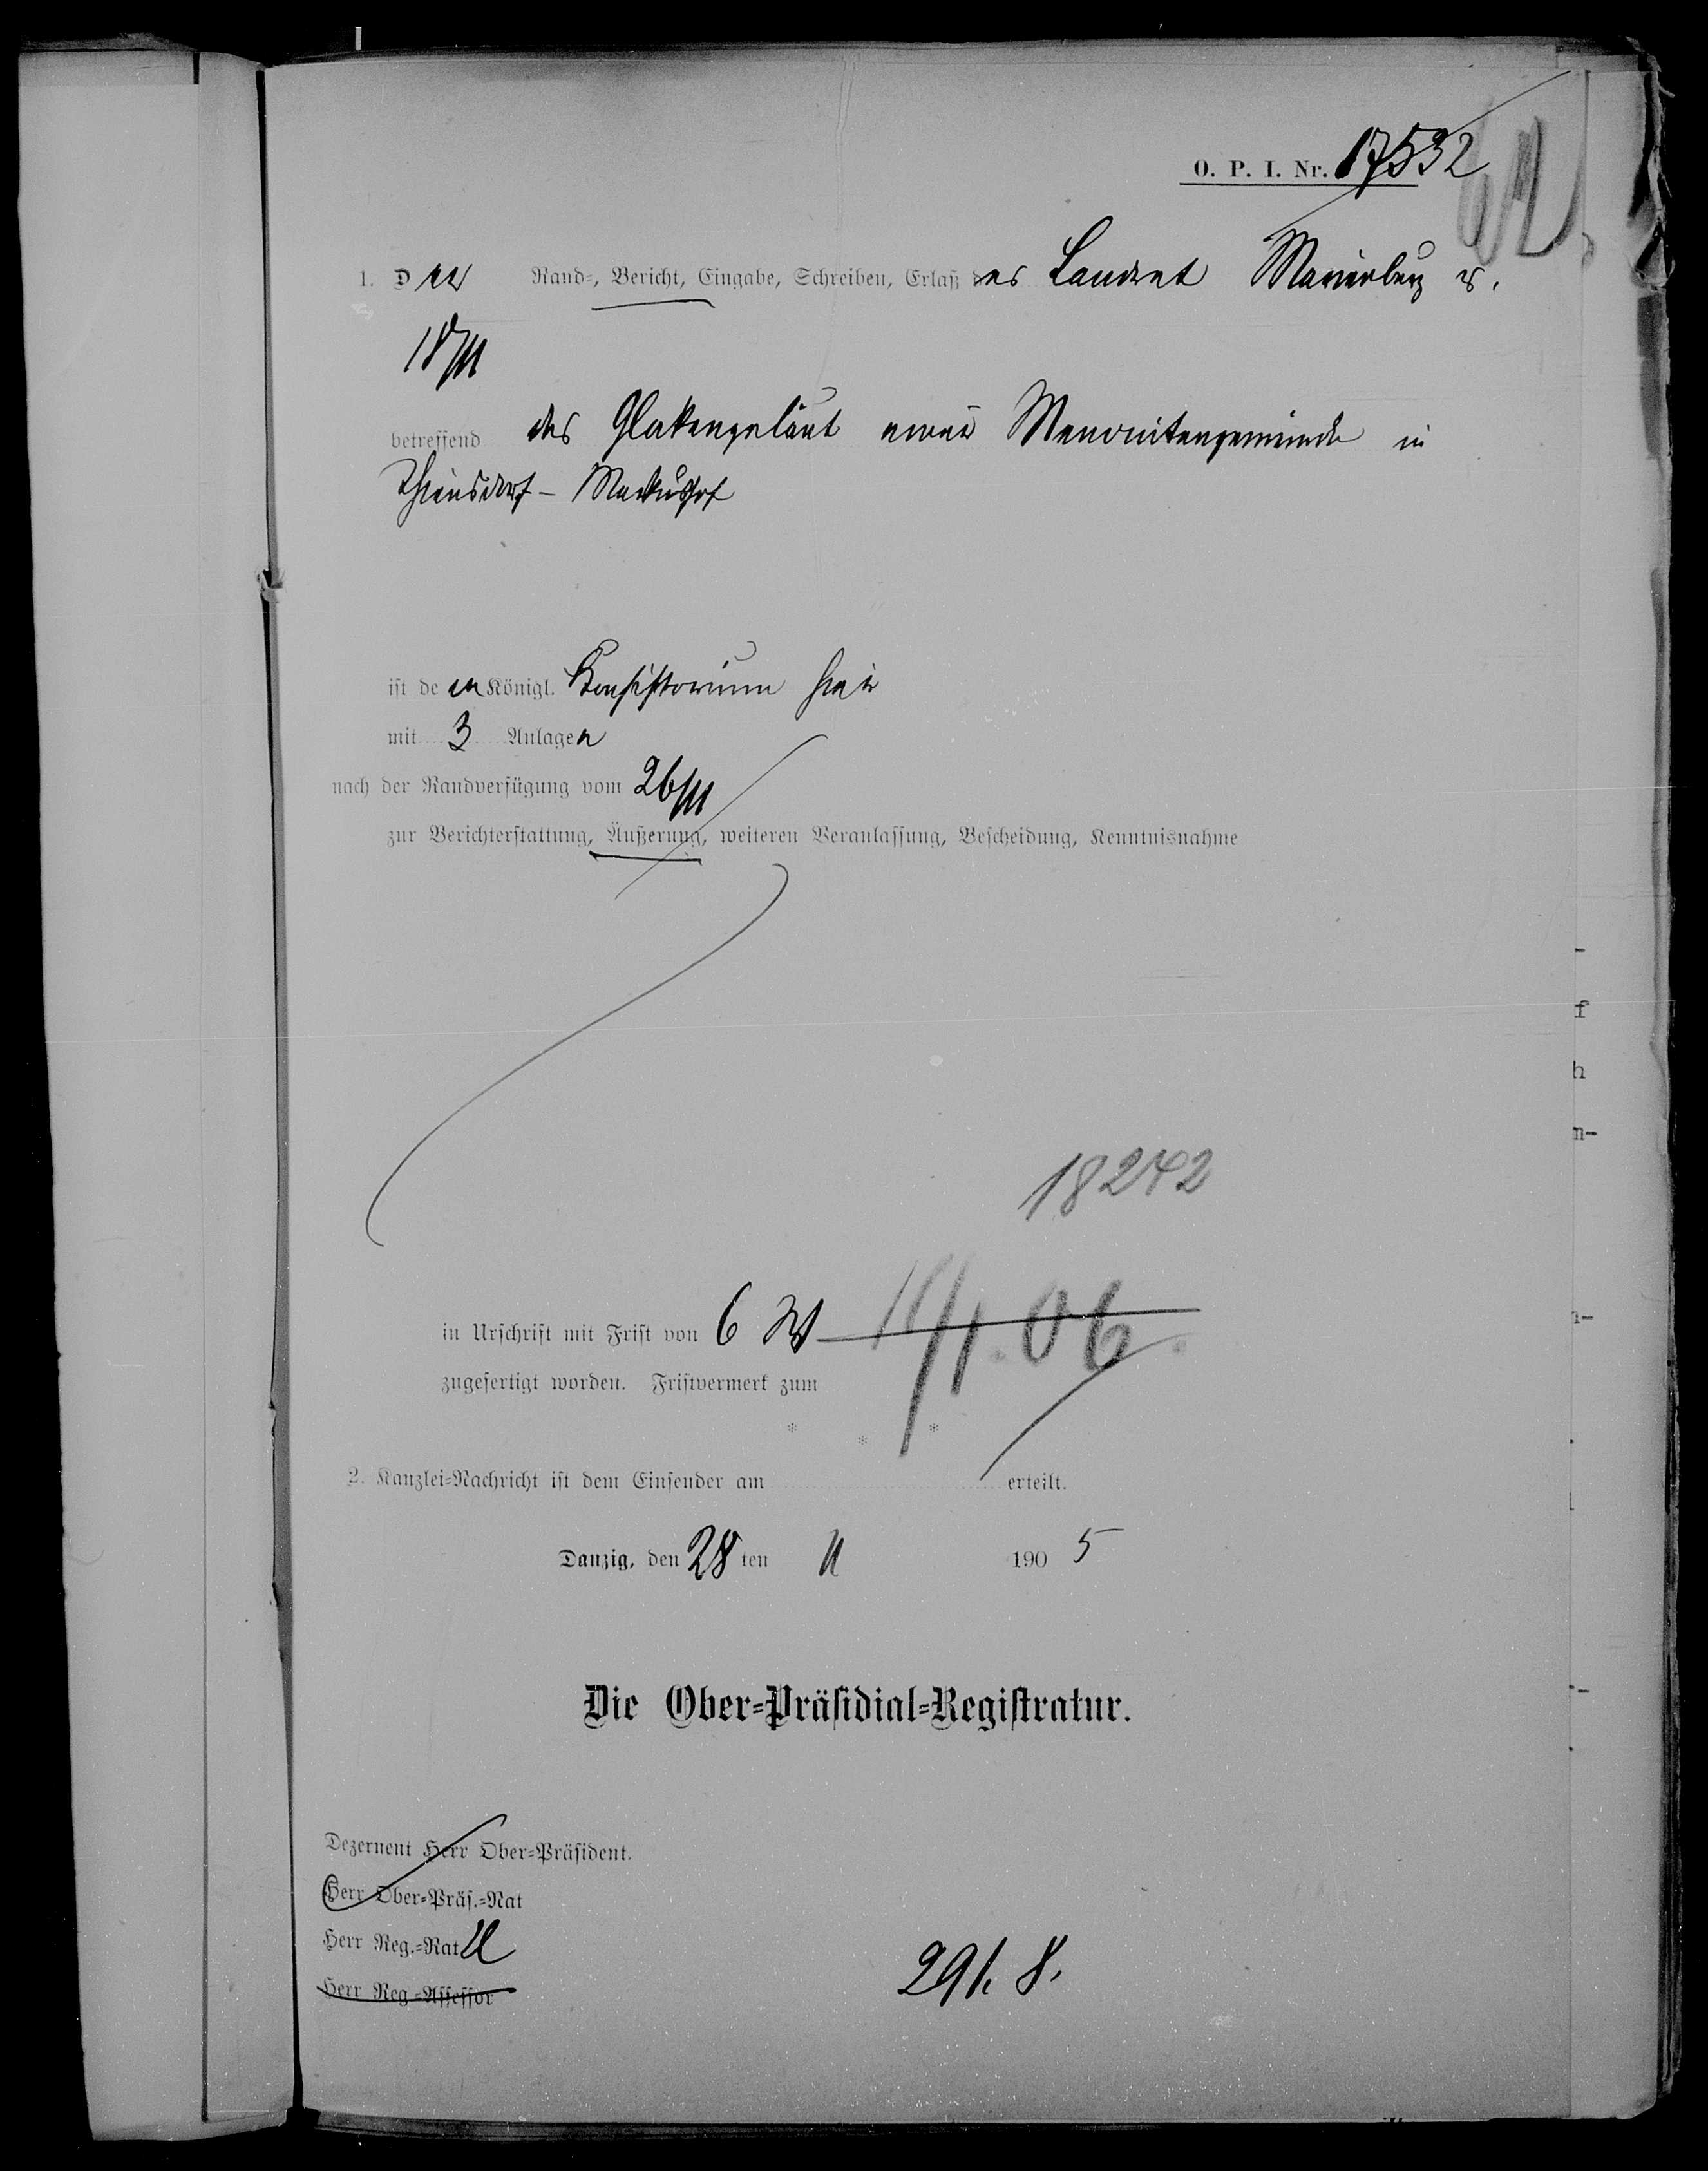 O. P. I. Nr. 17532
1. Der Rand-, Bericht, Eingabe, Schreiben, Erlaß des Landrat Marienburg v.
18/11
betreffend das Glockengeläut einer Mennonitengemeinde in
Thiensdorf - Markushof
ist dem Königl. Konsistorium hier
mit 3 Anlagen
nach der Randverfügung vom 26/11
zur Berichterstattung, Äußerung, weiteren Veranlassung, Bescheidung, Kenntnisnahme
18242
in Urschrift mit Frist von 6 W 11/1. 06.
zugefertigt worden. Fristvermerk zum
* * *
2. Kanzlei-Nachricht ist dem Einsender am erteilt.
Danzig, den 28 ten 11 1905
Die Ober-Präsidial-Registratur.
Dezernent Herr Ober-Präsident.
Herr Ober-Präs.-Rat
Herr Reg.-Rat
Herr Reg.-Assessor